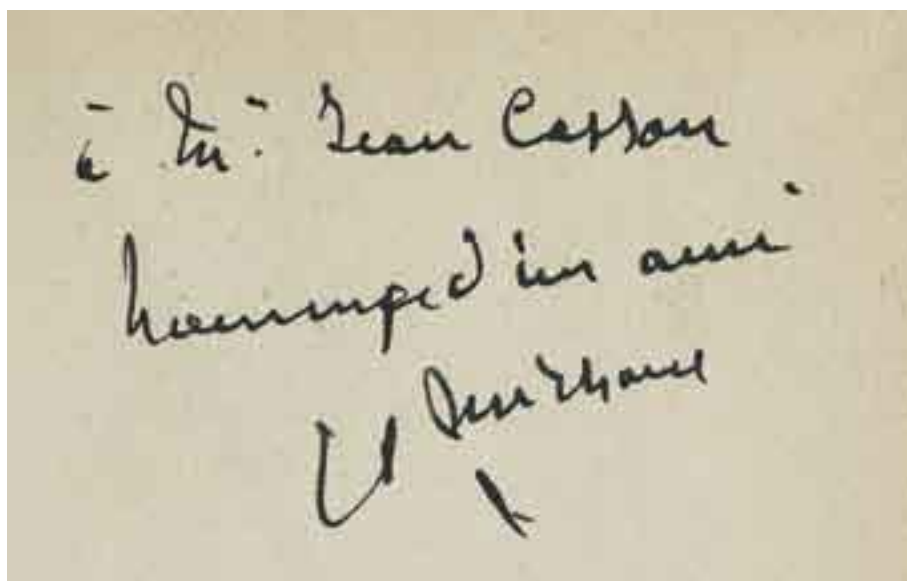 à Mr Jean Cassou
hommage d'un ami